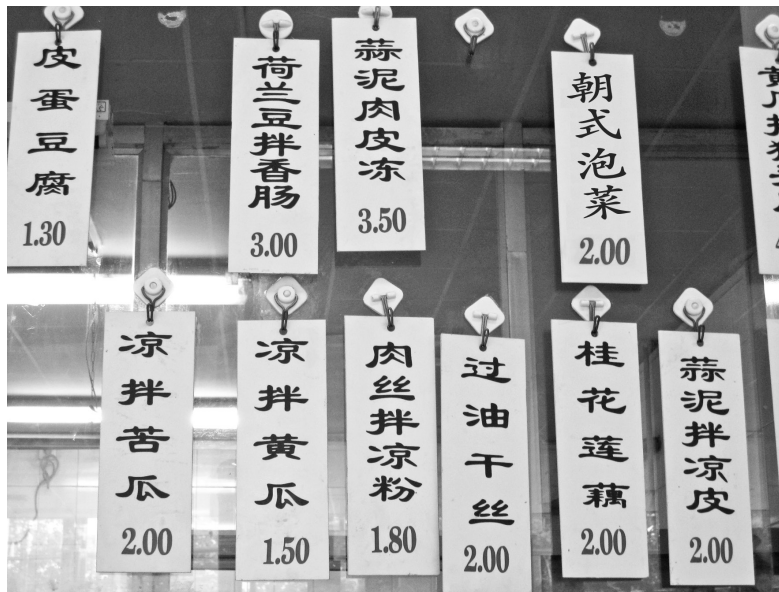 皮蛋豆腐
1.30
荷兰豆拌香肠
3.00
蒜泥肉皮冻
3.50
朝式泡菜
2.00
凉拌苦瓜
2.00
凉拌黄瓜
1.50
肉丝拌凉粉
1.80
过油干丝
2.00
桂花莲藕
2.00
蒜泥拌凉皮
2.00